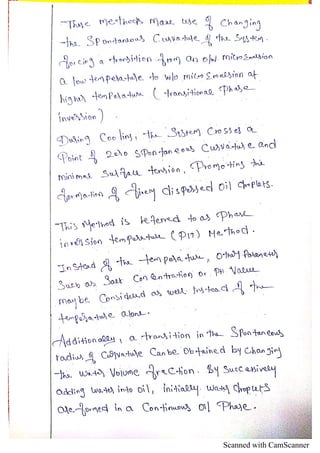 These methods make use of changing
the spontaneous curvature of the system.
forcing a transition from an o/w microemulsion
a low temperature to w/o microemulsion at
higher temperature (transitional phase
inversion).
During cooling, the system crosses a
point of zero spontaneous curvature and
minimal surface tension, promoting the
formation of finely dispersed oil droplets.
This method is referred to as phase
inversion temperature (PIT) method.
Instead of the temperature, other parameters
such as salt concentration or pH value
may be considered as well instead of the
temperature alone.
Additionally, a transition in the spontaneous
radius of curvature can be obtained by changing
the water volume fraction. By successively
adding water into oil, initially water droplets
are formed in a continuous oil phase.
Scanned with CamScanner